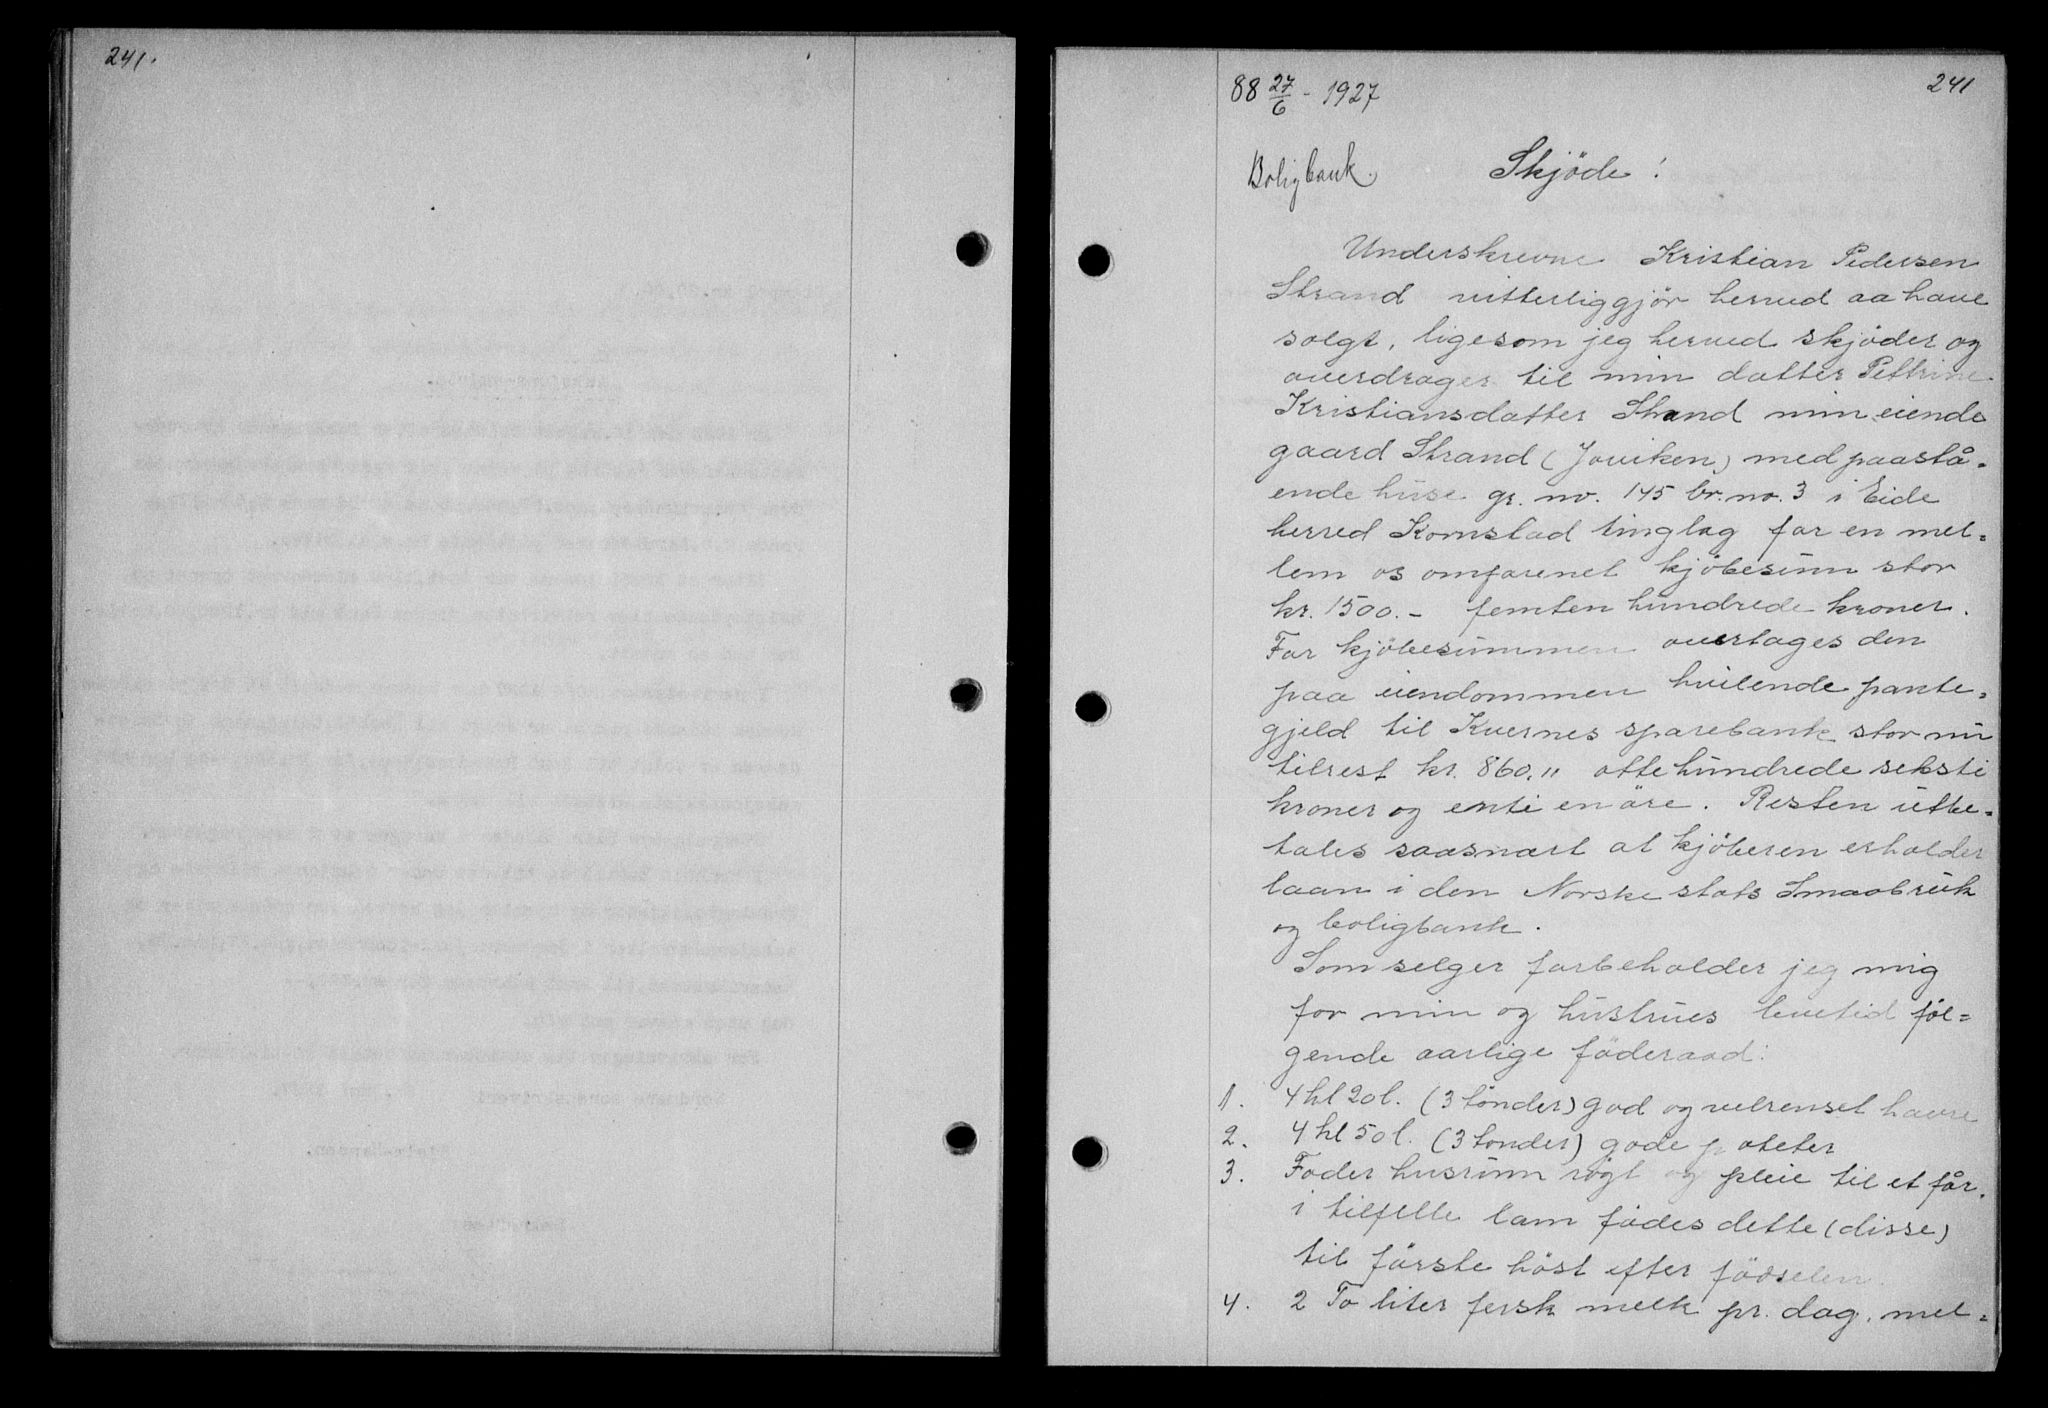 241.
88 27/6 - 1927
241
Boligbank.
Skjöde!
Underskrevne Kristian Pedersen
Strand vitterliggjör herved aa have
solgt, ligesom jeg herved skjöder og
overdrager til min datter Pettrine
Kristiansdatter Strand min eiende
gaard Strand (Joviken) med paastå=
ende huse gr. no. 145 br. no. 3 i Eide
herred Kornstad tinglag for en mel=
lem os omforenet kjöbesum stor
kr. 1500.- femten hundrede kroner.
For kjöbesummen overtages den
paa eiendommen hvilende pante=
gjeld til Kvernes sparebank stor nu
tilrest kr. 860," otte hundrede seksti
kroner og enti en öre. Resten utbe=
tales saasnart at kjöberen erholder
laan i den Norske stats Smaabruk
og boligbank.
Som selger forbeholder jeg mig
for min og hustrues levetid föl=
gende aarlige föderaad:
1. 4 hl 20 l. (3 tönder) god og velrenset havre
2. 4 hl 50 l. (3 tönder) gode poteter
3. Foder husrum rögt og pleie til et får.
i tilfelle lam födes dette (disse)
til förste höst efter födselen.
4. 2 To liter fersk melk pr. dag. mel=